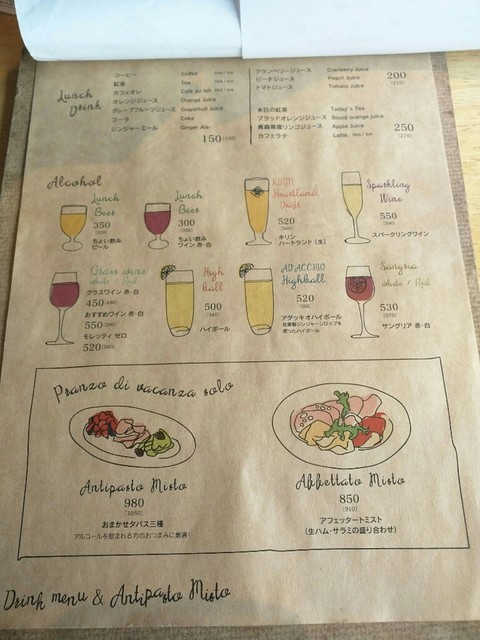 Lunch Drink
コーヒー Coffee Hot / Ice
紅茶 Tea Hot / Ice
カフェオレ Café au lait Hot / Ice
オレンジジュース Orange Juice
グレープフルーツジュース Grapefruit Juice
コーラ Coke
ジンジャーエール Ginger Ale
150
クランベリージュース Cranberry Juice
ピーチジュース Peach Juice
トマトジュース Tomato Juice
200
本日の紅茶 Today's Tea
ブラッドオレンジジュース Blood orange Juice
青森県産リンゴジュース Apple Juice
カフェラテ Latte Hot / Ice
250
Alcohol
Lunch Beer
350
ちょい飲み
ビール
Lunch Beer
300
ちょい飲み
ワイン 赤・白
KIRIN Heartland Draft
520
キリン
ハートランド [生]
Sparkling Wine
550
スパークリングワイン
Grass wine
white / Red
グラスワイン 赤・白
450
おすすめワイン 赤・白
550
モレッティ ゼロ
520
High ball
500
ハイボール
ADACCHIO Highball
520
アダッキオハイボール
自家製ジンジャーシロップを
使ったハイボール
Sangria
white / Red
530
サングリア 赤・白
Pranzo di vacanza solo
Antipasto Misto
980
(1050)
おまかせタパス三種
アルコールを飲まれる方のおつまみに最適!
Affettato Misto
850
(910)
アフェッタートミスト
(生ハム・サラミの盛り合わせ)
Drink menu & Antipasto Misto